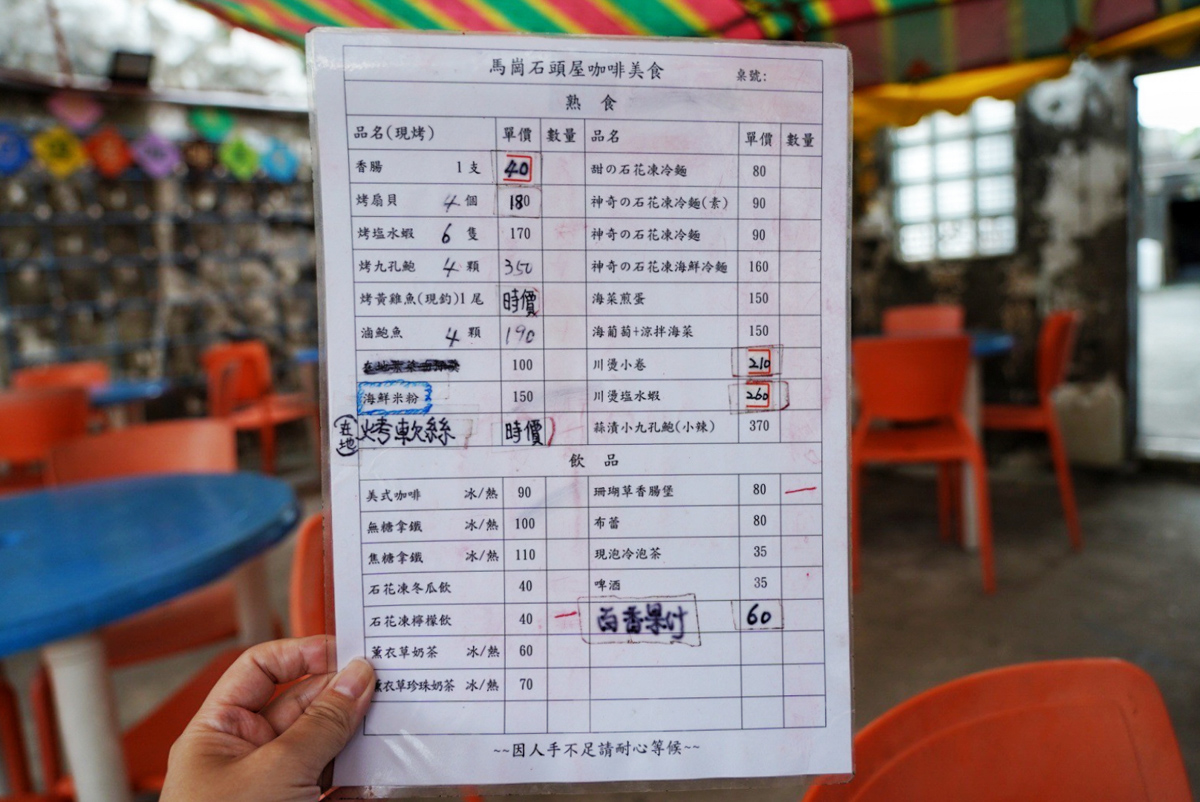 馬崗石頭屋咖啡美食 桌號:
熟 食
品名(現烤) 單價 數量 品名 單價 數量
香腸 1支 40 甜の石花凍冷麵 80
烤扇貝 4個 180 神奇の石花凍冷麵(素) 90
烤塩水蝦 6隻 170 神奇の石花凍冷麵 90
烤九孔鮑 4顆 350 神奇の石花凍海鮮冷麵 160
烤黃雞魚(現釣)1尾 時價 海菜煎蛋 150
滷鮑魚 4顆 190 海葡萄+涼拌海菜 150
100 川燙小卷 210
海鮮米粉 150 川燙塩水蝦 260
在地 烤軟絲 時價 蒜漬小九孔鮑(小辣) 370
飲 品
美式咖啡 冰/熱 90 珊瑚草香腸堡 80 一
無糖拿鐵 冰/熱 100 布蕾 80
焦糖拿鐵 冰/熱 110 現泡冷泡茶 35
石花凍冬瓜飲 40 啤酒 35
石花凍檸檬飲 40 一 百香果汁 60
薰衣草奶茶 冰/熱 60
薰衣草珍珠奶茶 冰/熱 70
~~因人手不足請耐心等候~~